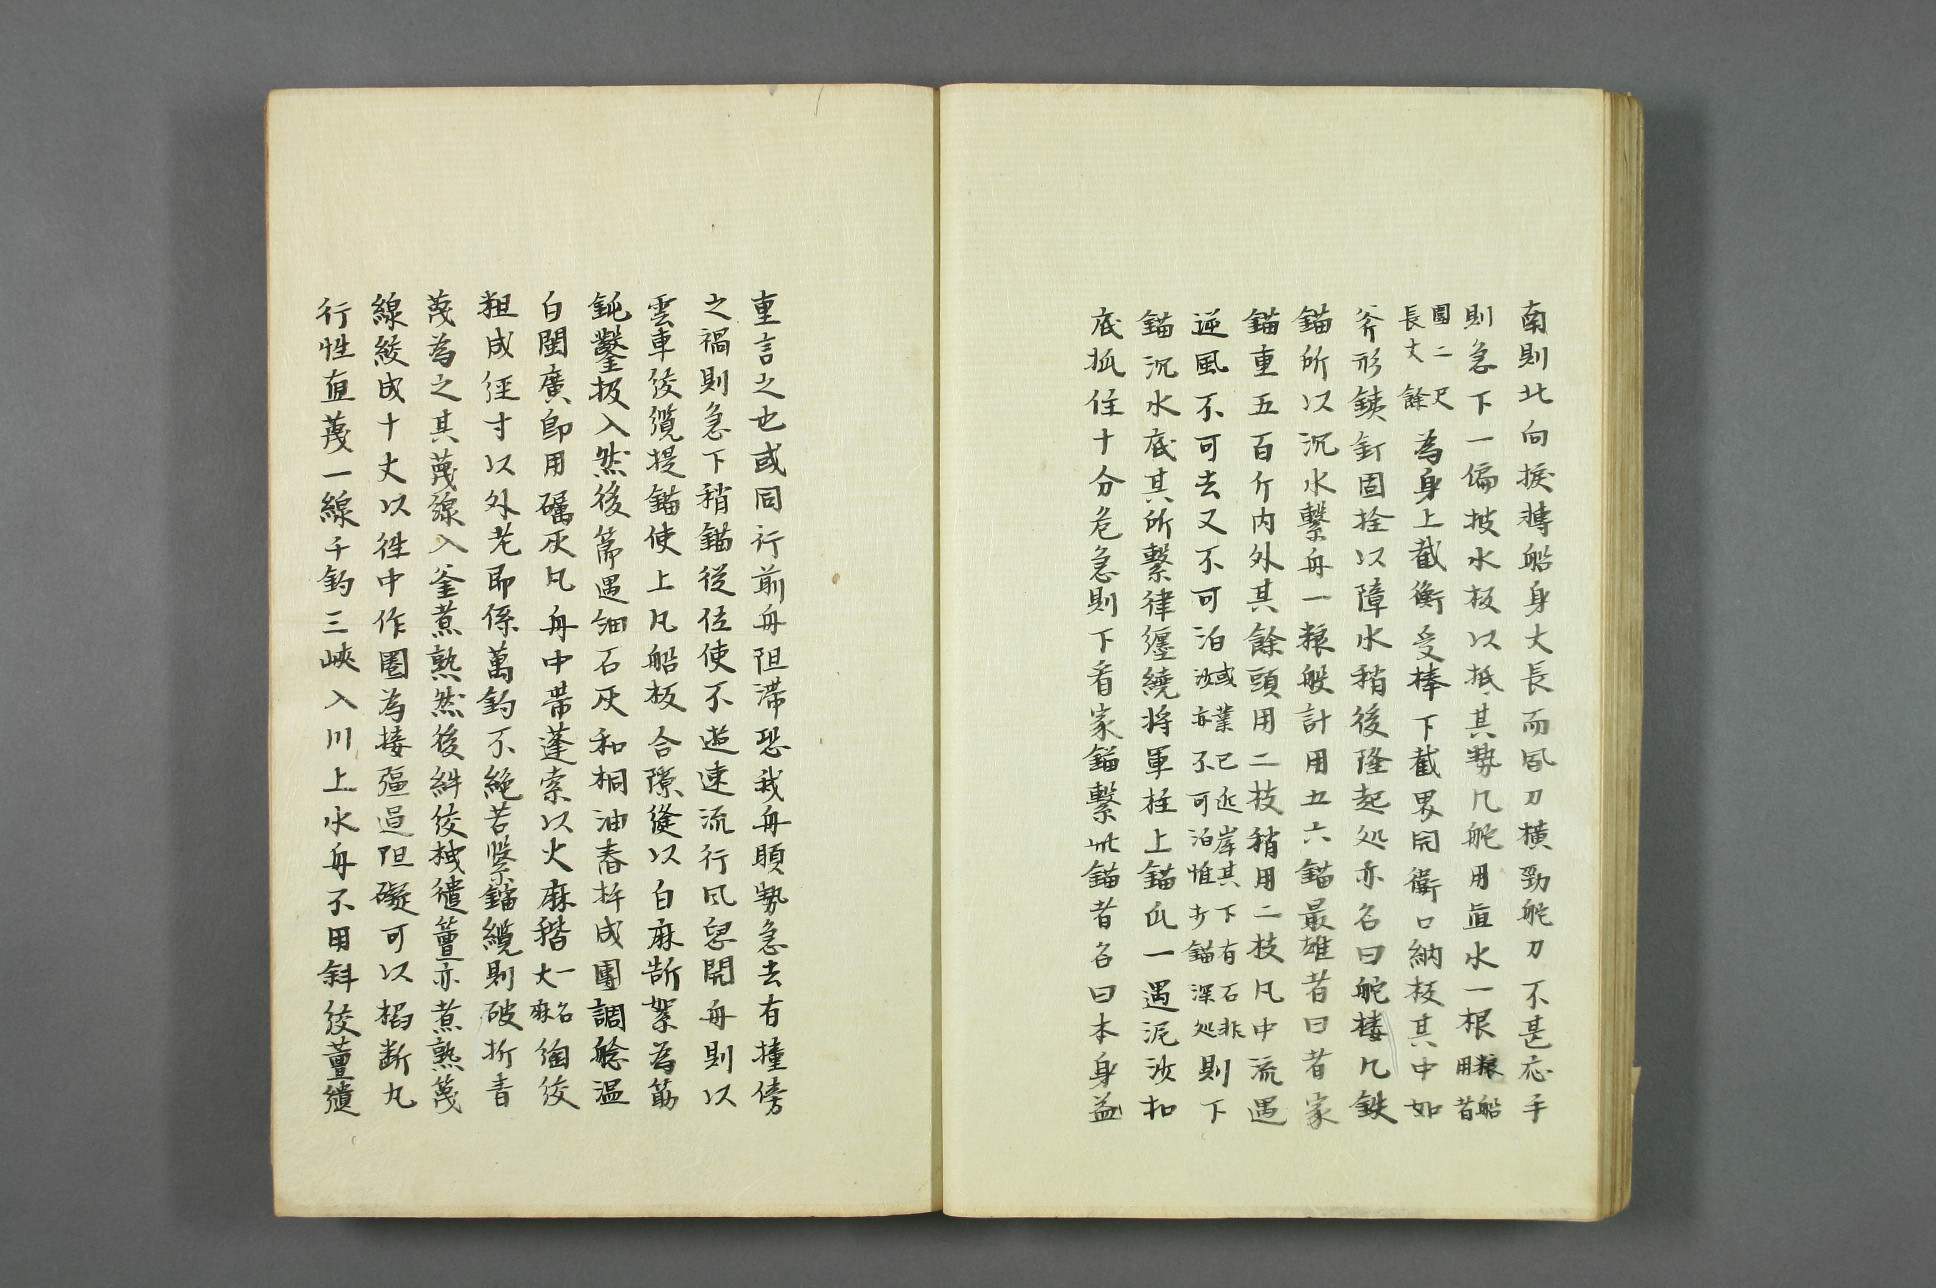 南則北向捩轉船身大長而風力橫勁舵力不甚応手
則急下一偏披水板以抵其勢凡舵用直水一根粮船用者
圍二尺長丈餘為身上截衡受棒下截界開衘口納板其中如
斧形鉄釘固拴以障水稍後隆起処亦名曰舵楼凡鉄
錨所以沉水繋舟一粮般計用五六錨最雄者曰者家
錨重五百斤内外其餘頭用二枝稍用二枝凡中流遇
逆風不可去又不可泊或業已近岸其下有石非沙亦不可泊惟打錨深処則下
錨沉水底其所繋律纒繞将軍柱上錨瓜一遇泥沙扣
底抓住十分危急則下看家錨繋此錨者名曰本身益
重言之也或同行前舟阻滞恐我舟順勢急去有撞傍
之禍則急下稍錨從位使不迆速流行风息開舟則以
雲車絞纜提錨使上凡船板合隙縫以白麻斮絮為筋
鈍鑿扱入然後篩過細石灰和桐油舂杵成團調艌温
白閩廣即用礪灰凡舟中帯蓬索以火麻稭一名大麻綯絞
粗成径寸以外老即係萬鈞不絶若繋錨纜則破折青
蔑為之其蔑線入釜煮熟然後糾絞拽繾簟亦煮熟蔑
線絞成十丈以往中作圏為接彄過阻礙可以搯断凡
行性直蔑一線千鈞三峽入川上水舟不用斜絞蕈繾